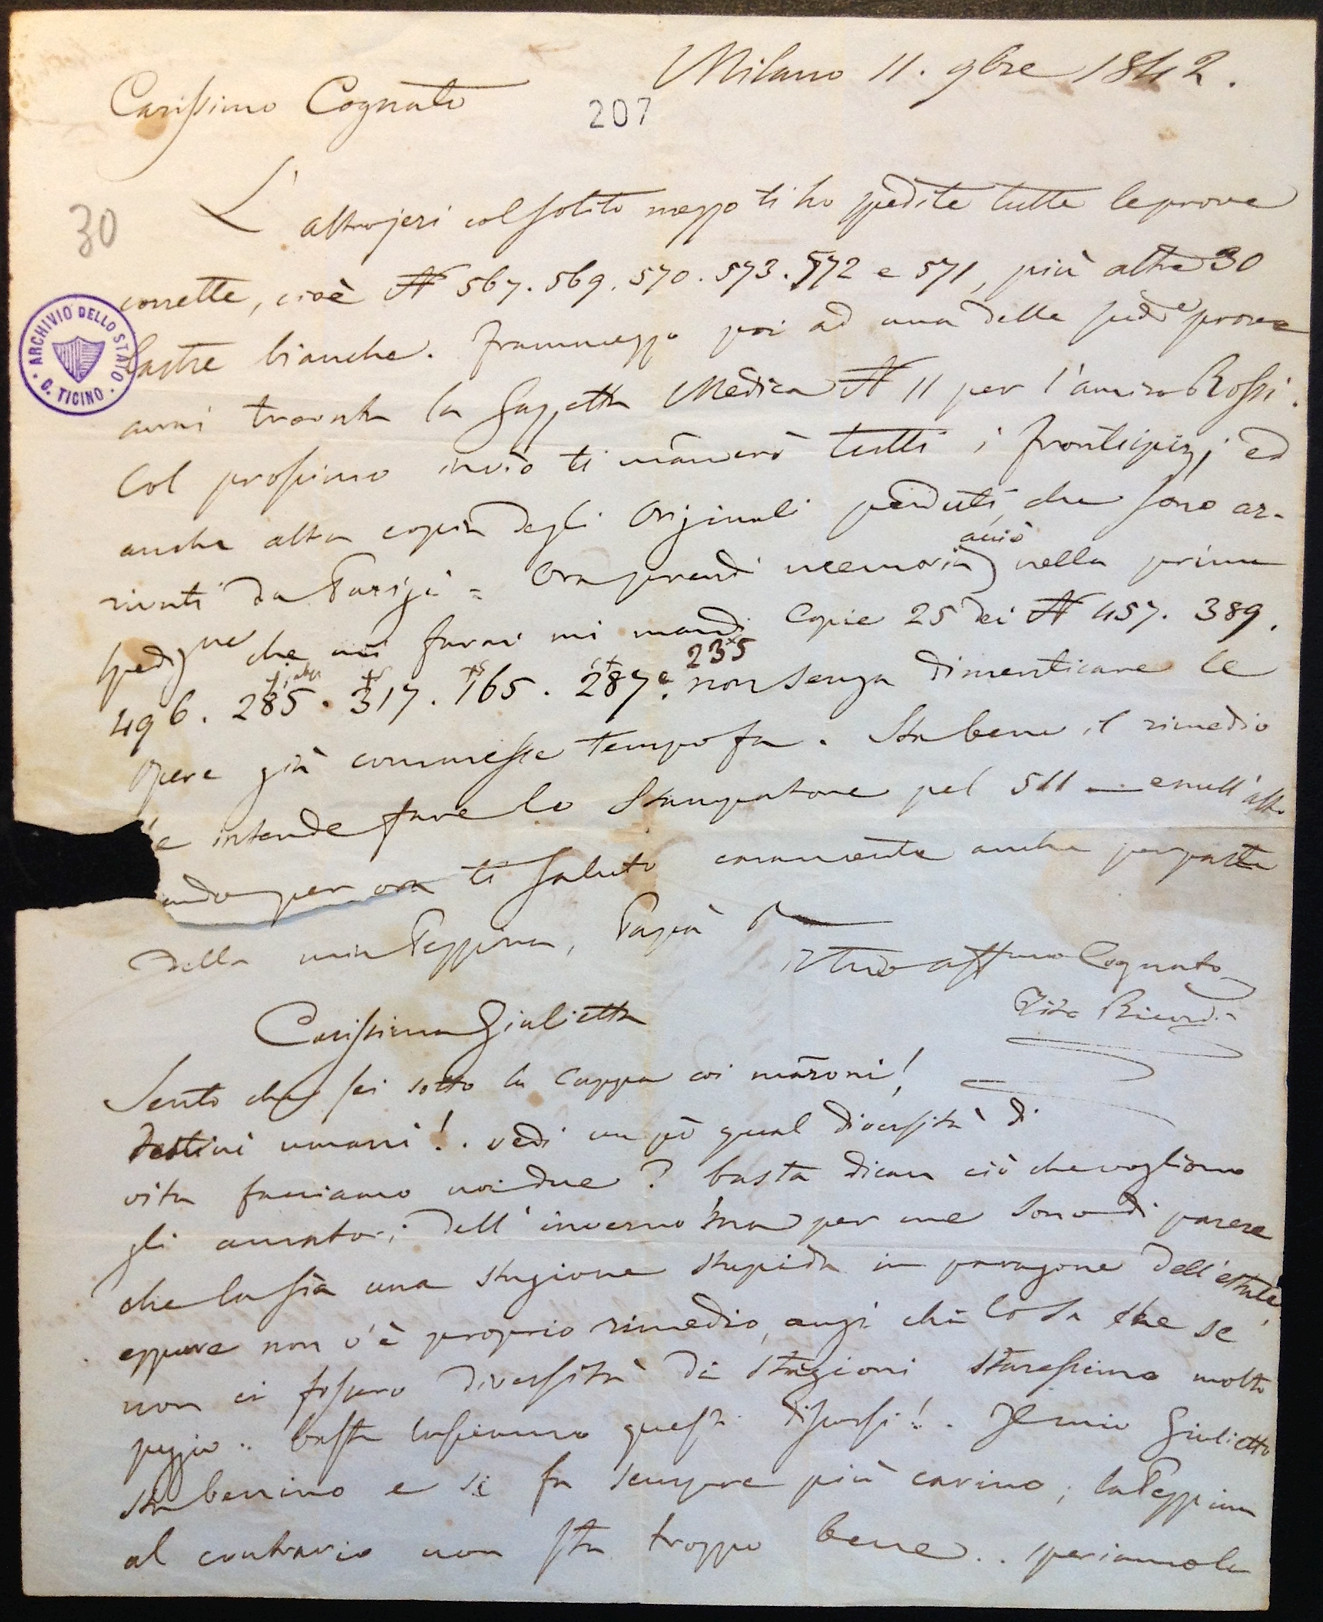 Milano 11. 9bre 1842.
Carissimo Cognato
207
30
L'altrojeri col solito mezzo ti ho spedite tutte le prove
corrette, cioè N 567. 569. 570. 573. 572 e 571, più altre 30
lastre bianche. Frammezzo poi ad una delle sudde prove
avrai trovata la Gazzetta Medica N 11 per l'amico Rossi.
Col prossimo invio ti manderò tutti i frontispizj ed
anche altra copia degli Originali perduti, che sono ar-
rivati da Parigi = Ora prendi memoria acciò nella prima
spedizne che mi farai mi mandi Copie 25 dei N 457. 389.
496. 285. 317. 165. 287. e 235 non senza dimenticare le
opere già commesse tempo fa. Sta bene il rimedio
e intende fare lo Stampatore pel 511 — e null'altro
ando per ora ti saluto caramente anche per parte
della mia Peppina, Papà
il tuo affmo Cognato
Tito Ricordi
Carissima Giulietta
Sento che sei sotto la cappa coi maroni!
destini umani!. vedi un pò qual diversità di
vita facciamo noi due? basta dican ciò che vogliono
gli amatori dell'inverno ma per me sono di parere
che la sia una stagione stupida in paragone dell'estate,
eppure non v'è proprio rimedio, anzi chi lo sa che se
non ci fossero diversità di stagioni staressimo molto
peggio.. basta lasciamo questi discorsi!. Il mio Giulietto
sta benino e si fa sempre più carino; la Peppina
al contrario non sta troppo bene.. speriamola
ARCHIVIO DELLO STATO
C. TICINO